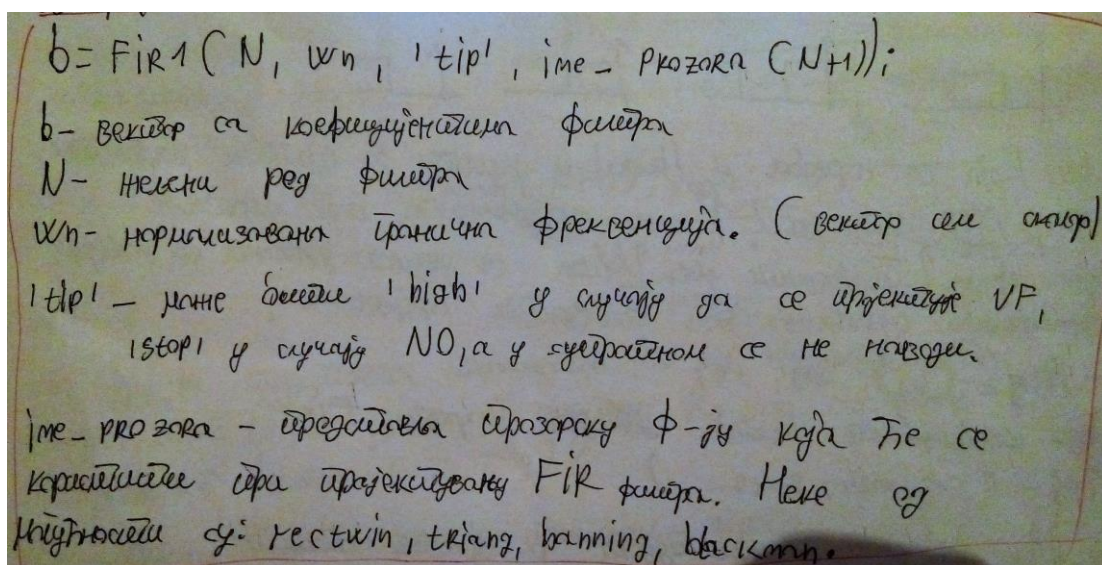 b = FiR1 ( N, Wn, 'tip', ime_prozora (N+1));
b - вектор са коефицијентима филтра
N - жељени ред филтра
Wn - нормализована гранична фреквенција. (вектор или скалар)
'tip' - може бити 'high' у случају да се пројектује VF,
'stop' у случају NO, а у супротном се не наводи.
ime_prozora - представља прозорску ф-ју која ће се
користити при пројектувању FiR филтра. Неке од
могућности су: rectwin, triang, hanning, blackman.